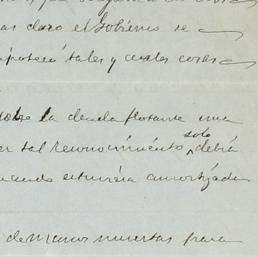 claro el Gobierno se
tales y cuales cosas
sobre la deuda flotante una
tal reconocimiento solo debiá
cuando estuviera amortizada
de manos muertas para